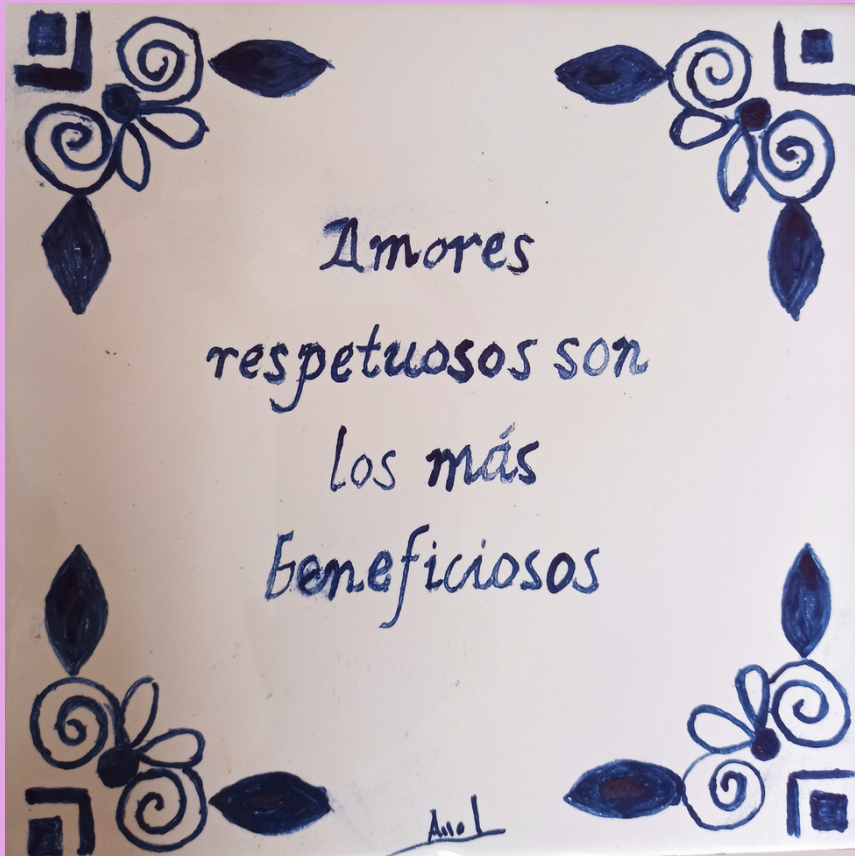 Amores
respetuosos son
los más
beneficiosos